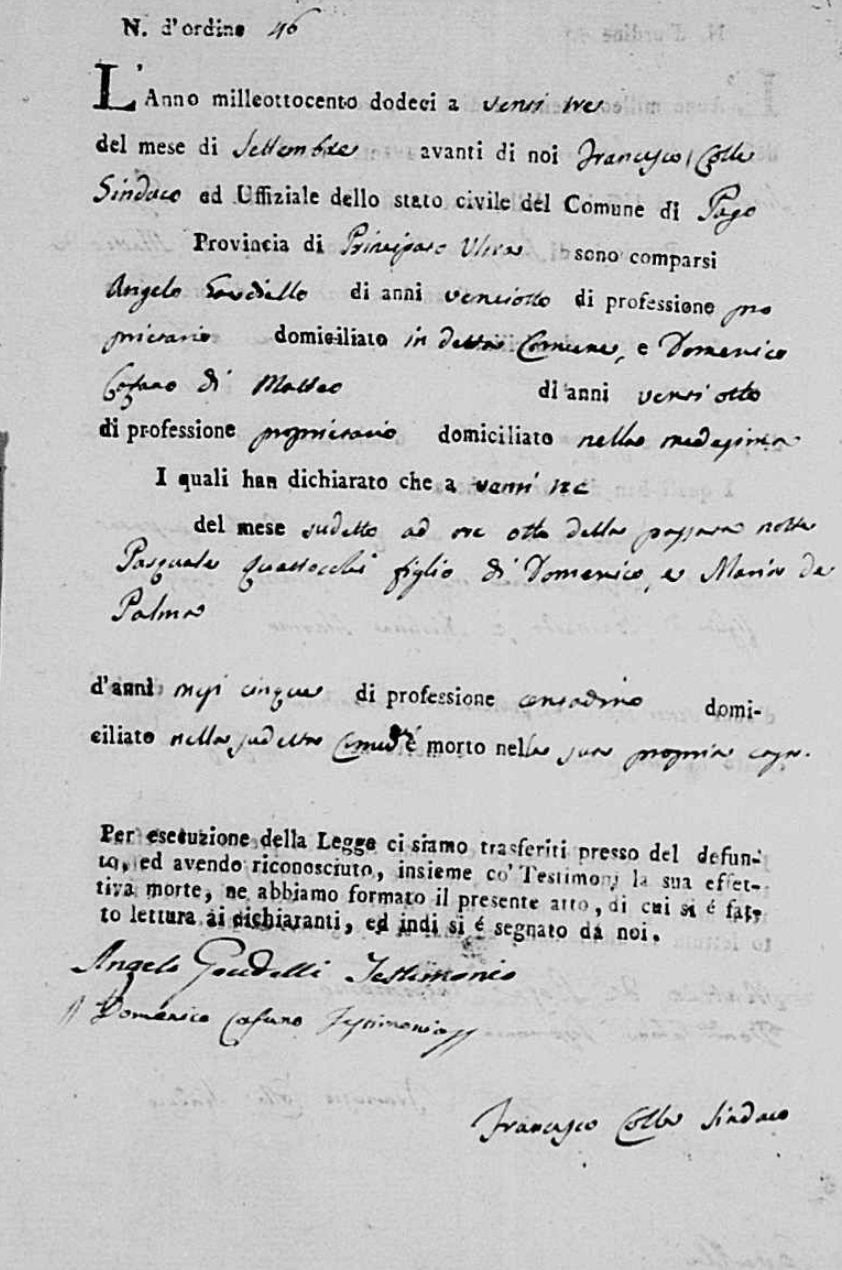 N. d'ordine 46
L'Anno milleottocento dodeci a venti tre
del mese di Settembre avanti di noi Francesco Colle
Sindaco ed Uffiziale dello stato civile del Comune di Pago
Provincia di Principato Ultra sono comparsi
Angelo di anni ventiotto di professione pro
prietario domiciliato in detto Comune, e Domenico
Cafaro di Matteo di anni venti otto
di professione proprietario domiciliato nella medesima
I quali han dichiarato che a venti tre
del mese sudetto ad ore otto della passata notte
Pasquale Quattrocchi figlio di Domenico, e Maria de
Palma
d'anni mesi cinque di professione contadino domi-
ciliato nella sudetta é morto nella sua propria casa.
Per esecuzione della Legge ci siamo trasferiti presso del defun-
to, ed avendo riconosciuto, insieme co' Testimonj la sua effet-
tiva morte, ne abbiamo formato il presente atto, di cui si é fat-
to lettura ai dichiaranti, ed indi si é segnato da noi.
Angelo Testimonio
Domenico Cafaro Testimonio
Francesco Colle Sindaco